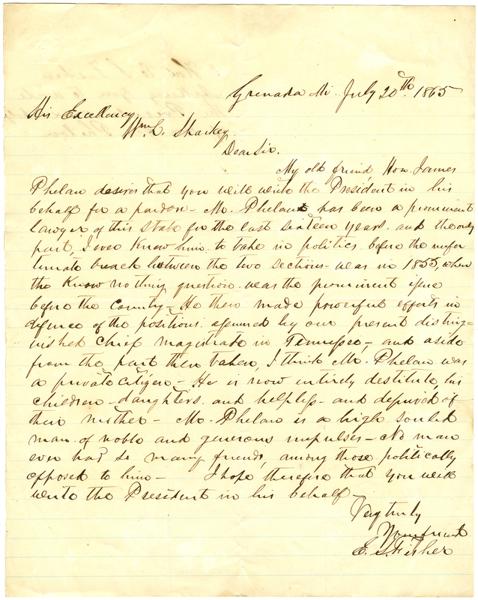 Grenada Mi. July 20th 1865
His Excellency
Wm L. Sharkey
Dear Sir.
My old friend Hon James
Phelan desires that you will write the President in his
behalf for a pardon - Mr. Phelan has been a prominent
lawyer of this state for the last sixteen years. and the only
part, I ever knew him to take in politics before the unfor
tunate breach between the two sections - was in 1855, when
the Know nothing question was the prominent issue
before the Country - He then made powerful efforts in
defence of the positions assumed by our present disting-
uished chief magistrate in Tennessee - and aside
from the part then taken, I think Mr. Phelan was
a private citizen - He is now entirely destitute, his
children - daughters, and helpless - and deprived of
their mother - Mr. Phelan is a high souled
man of noble and generous impulses - No man
ever had so many friends, among those politically
opposed to him - I hope therefore that you will
write the President in his behalf
Very truly
Your friend
E. S. Fisher